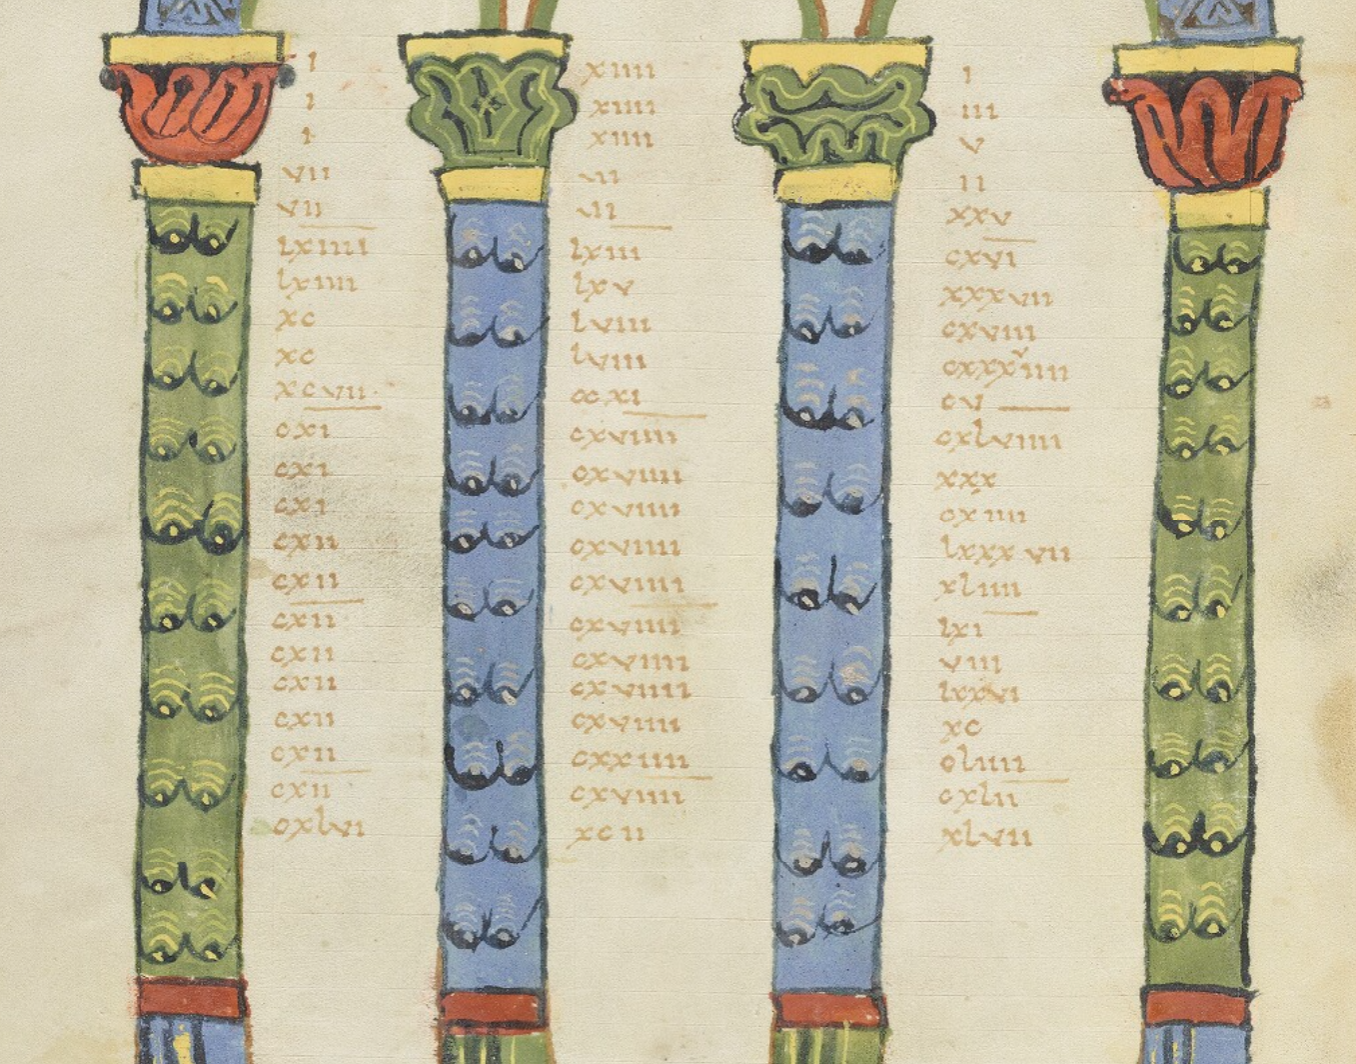 i xiiii i
i xiiii iii
i xiiii v
vii vi ii
vii vi xxv
lxiiii lxiii cxvi
lxiiii lxv xxxvii
xc lviii cxviii
xc lviii cxxxviiii
xcvii ccxi cv
cxi cxviiii cxlviiii
cxi cxviiii xxx
cxi cxviiii cxiiii
cxii cxviiii lxxxvii
cxii cxviiii xliiii
cxii cxviiii lxi
cxii cxviiii viii
cxii cxviiii lxxvi
cxii cxviiii xc
cxii cxxiiii cliiii
cxii cxviiii cxlii
cxlvi xcii xlvii